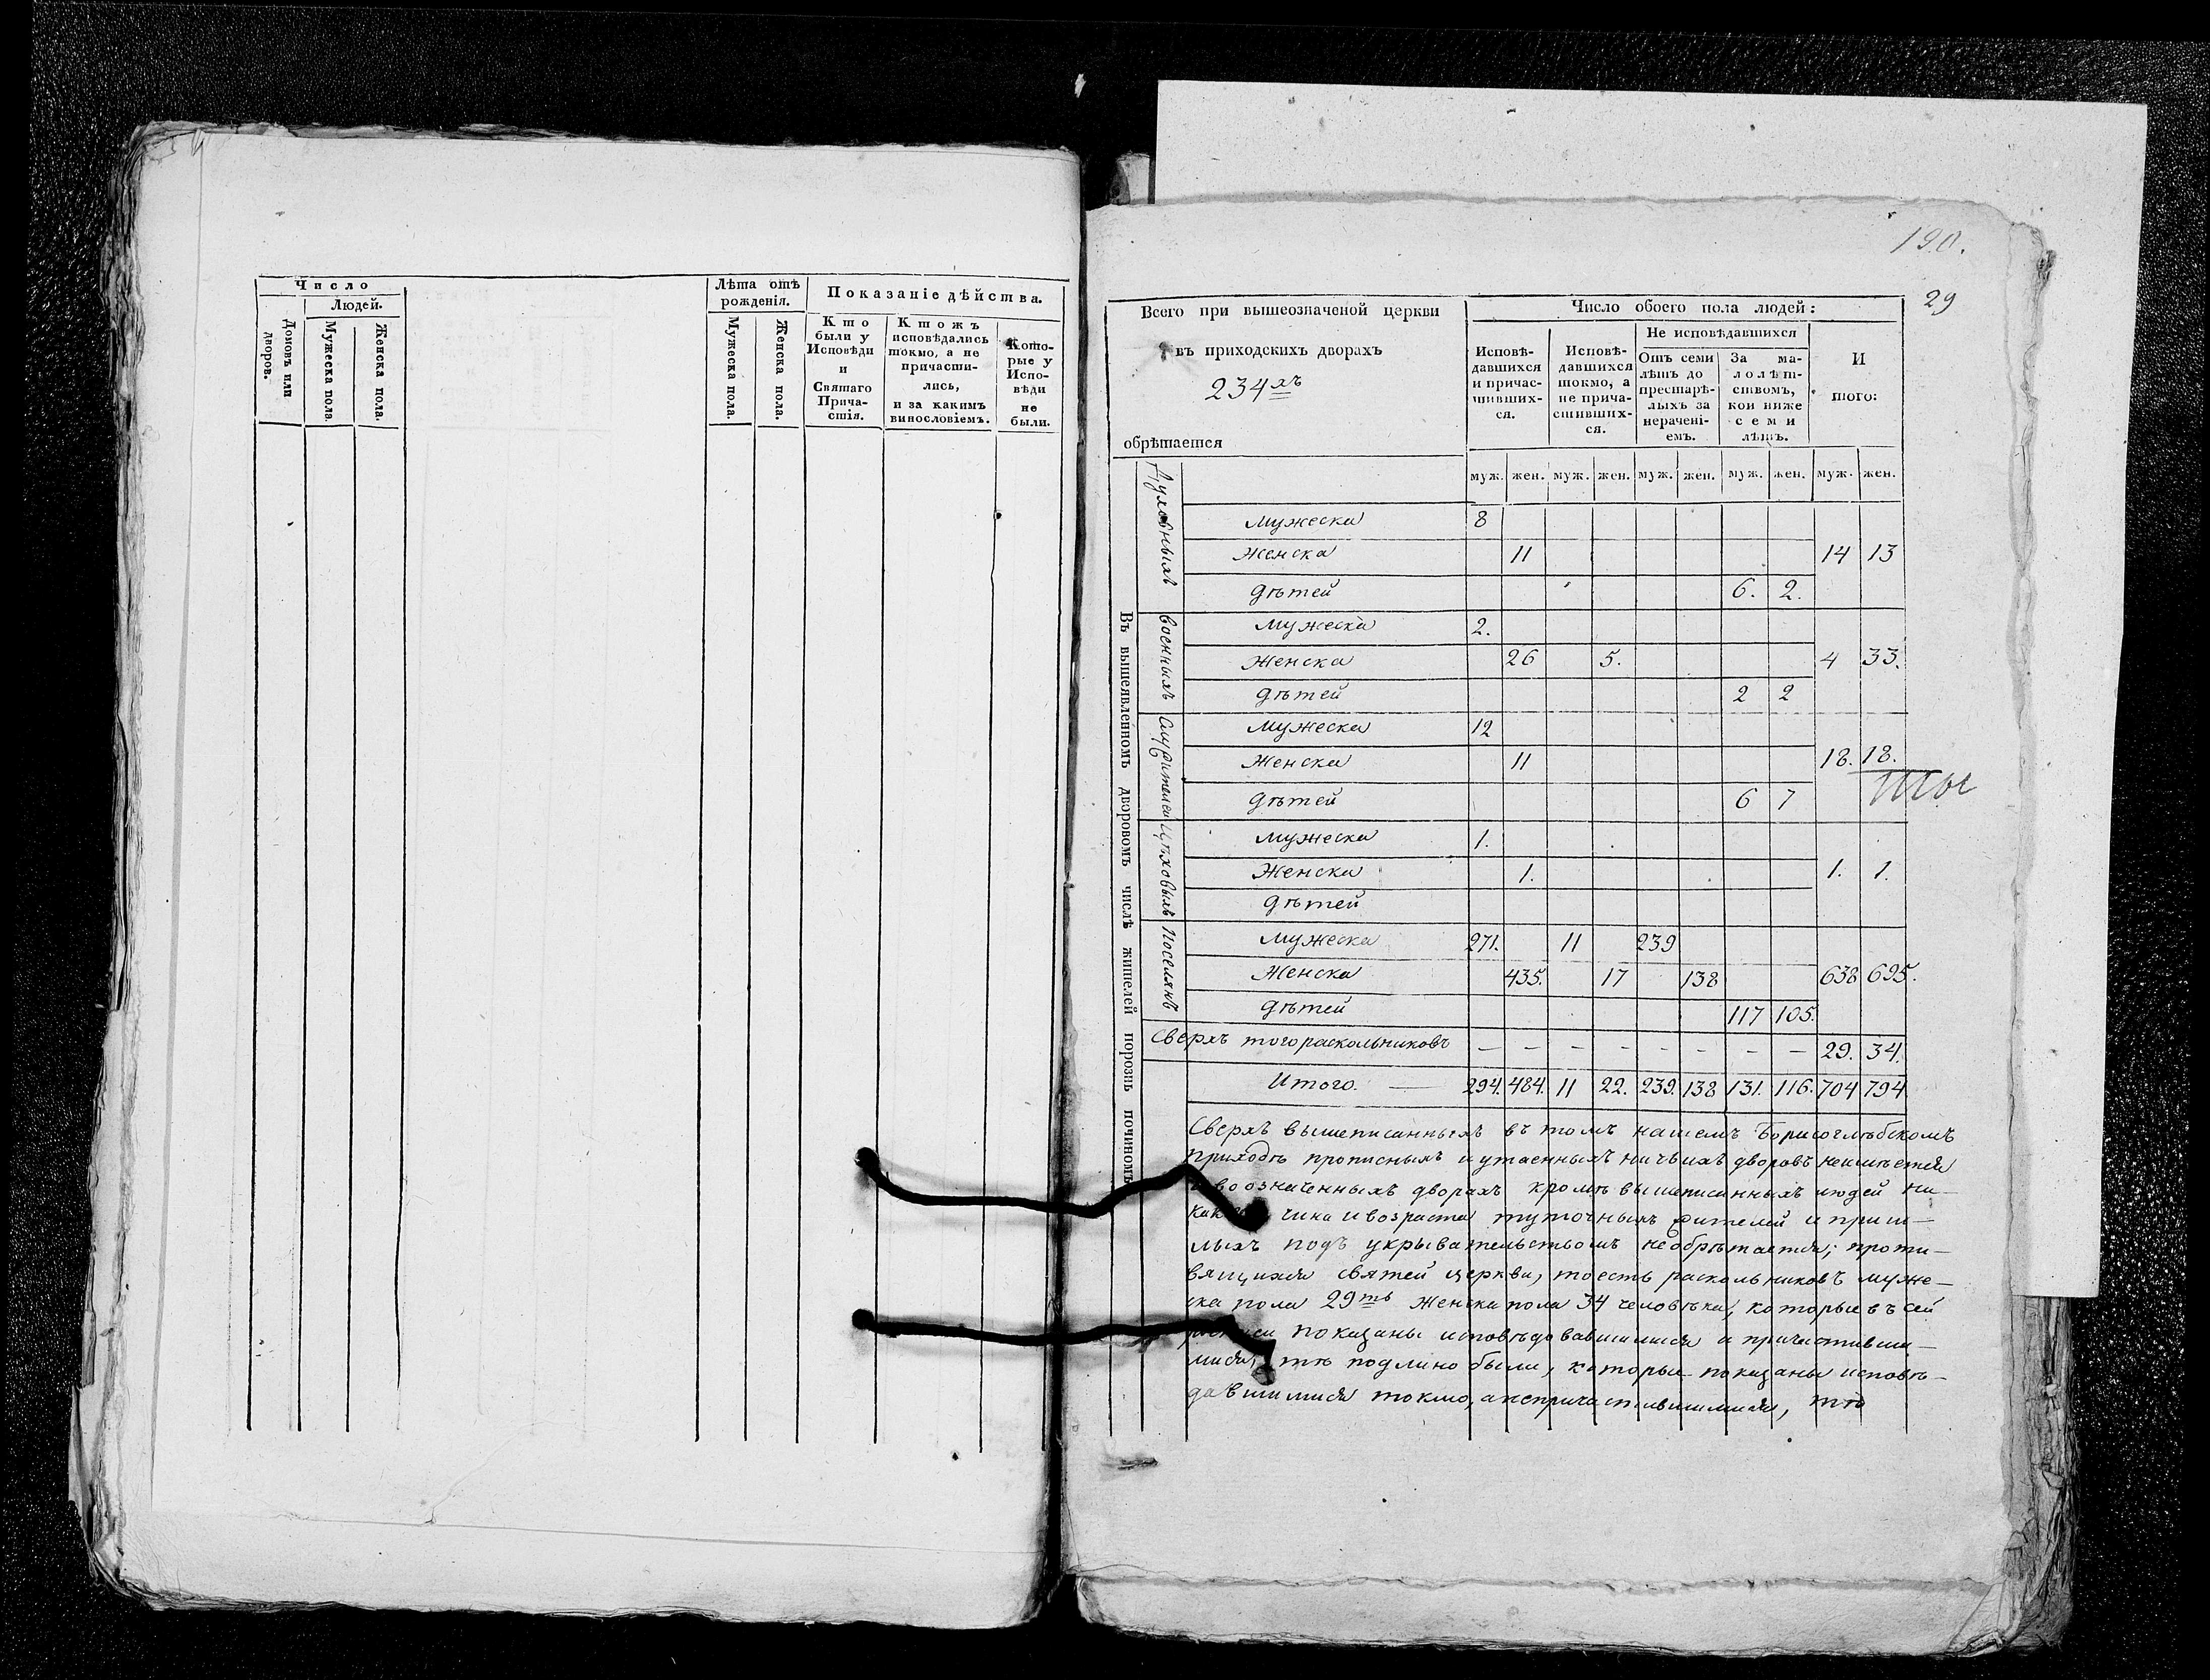 Число
Людей.
Домовъ или дворовъ.
Мужеска пола.
Женска пола.
Лѣта отъ рожденія.
Мужеска пола.
Женска пола.
Показаніе дѣйства.
Кто
были у
Исповѣди
и
Святаго
Прича-
стія.
Ктожъ
исповѣдались
токмо, а не
причасти-
лись,
и за какимъ
винословіемъ.
Кото-
рые у
Испо-
вѣди
не
были.
190.
29
Всего при вышеозначеной церкви
въ приходскихъ дворахъ
234хъ
обрѣтается
Число обоего пола людей:
Исповѣ-
давшихся
и причас-
тивших-
ся.
Исповѣ-
давшихся
токмо, а
не прича-
стивших-
ся.
Не исповѣдавшихся
Отъ семи
лѣтъ до
престарѣ-
лыхъ за
нерачені-
емъ.
За ма-
лолѣт-
ствомъ,
кои ниже
семи
лѣтъ.
И
того:
муж. жен. муж. жен. муж. жен. муж. жен. муж. жен.
Въ вышеявленномъ дворовомъ числѣ жителей порознь починомъ
Духовныхъ
Мужеска 8
Женска 11 14 13
Дѣтей 6. 2.
Военныхъ
Мужеска 2.
Женска 26 5. 4 33.
Дѣтей 2 2
Служителей
Мужеска 12
Женска 11 18. 18.
Дѣтей 6 7
Цѣховыхъ
Мужеска 1.
Женска 1. 1. 1.
Дѣтей
Поселянъ
Мужеска 271. 11 239
Женска 435. 17 138 638 695.
Дѣтей 117 105.
Сверхъ того раскольниковъ — — — — — — — — 29. 34.
Итого. — 294. 484. 11 22. 239. 138 131. 116. 704 794
Сверхъ вышеписанныхъ въ томъ нашемъ Борисоглѣбскомъ
приходѣ прописныхъ и утаенныхъ ничьихъ дворовъ неимѣется
и во означенныхъ дворахъ кромѣ вышеписанныхъ людей ни-
чина и возраста тутошныхъ жителей и приш-
лыхъ подъ укрывательствомъ необрѣтается; проти-
вящихся святей церкви, то есть раскольниковъ муже-
ска пола 29ть женска пола 34 человѣка, которые въ сей
показаны исповѣдовавшимися и причастивши-
мися, тѣ подлино были, которые показаны исповѣ-
давшимися токмо, а непричастившимися, тѣ